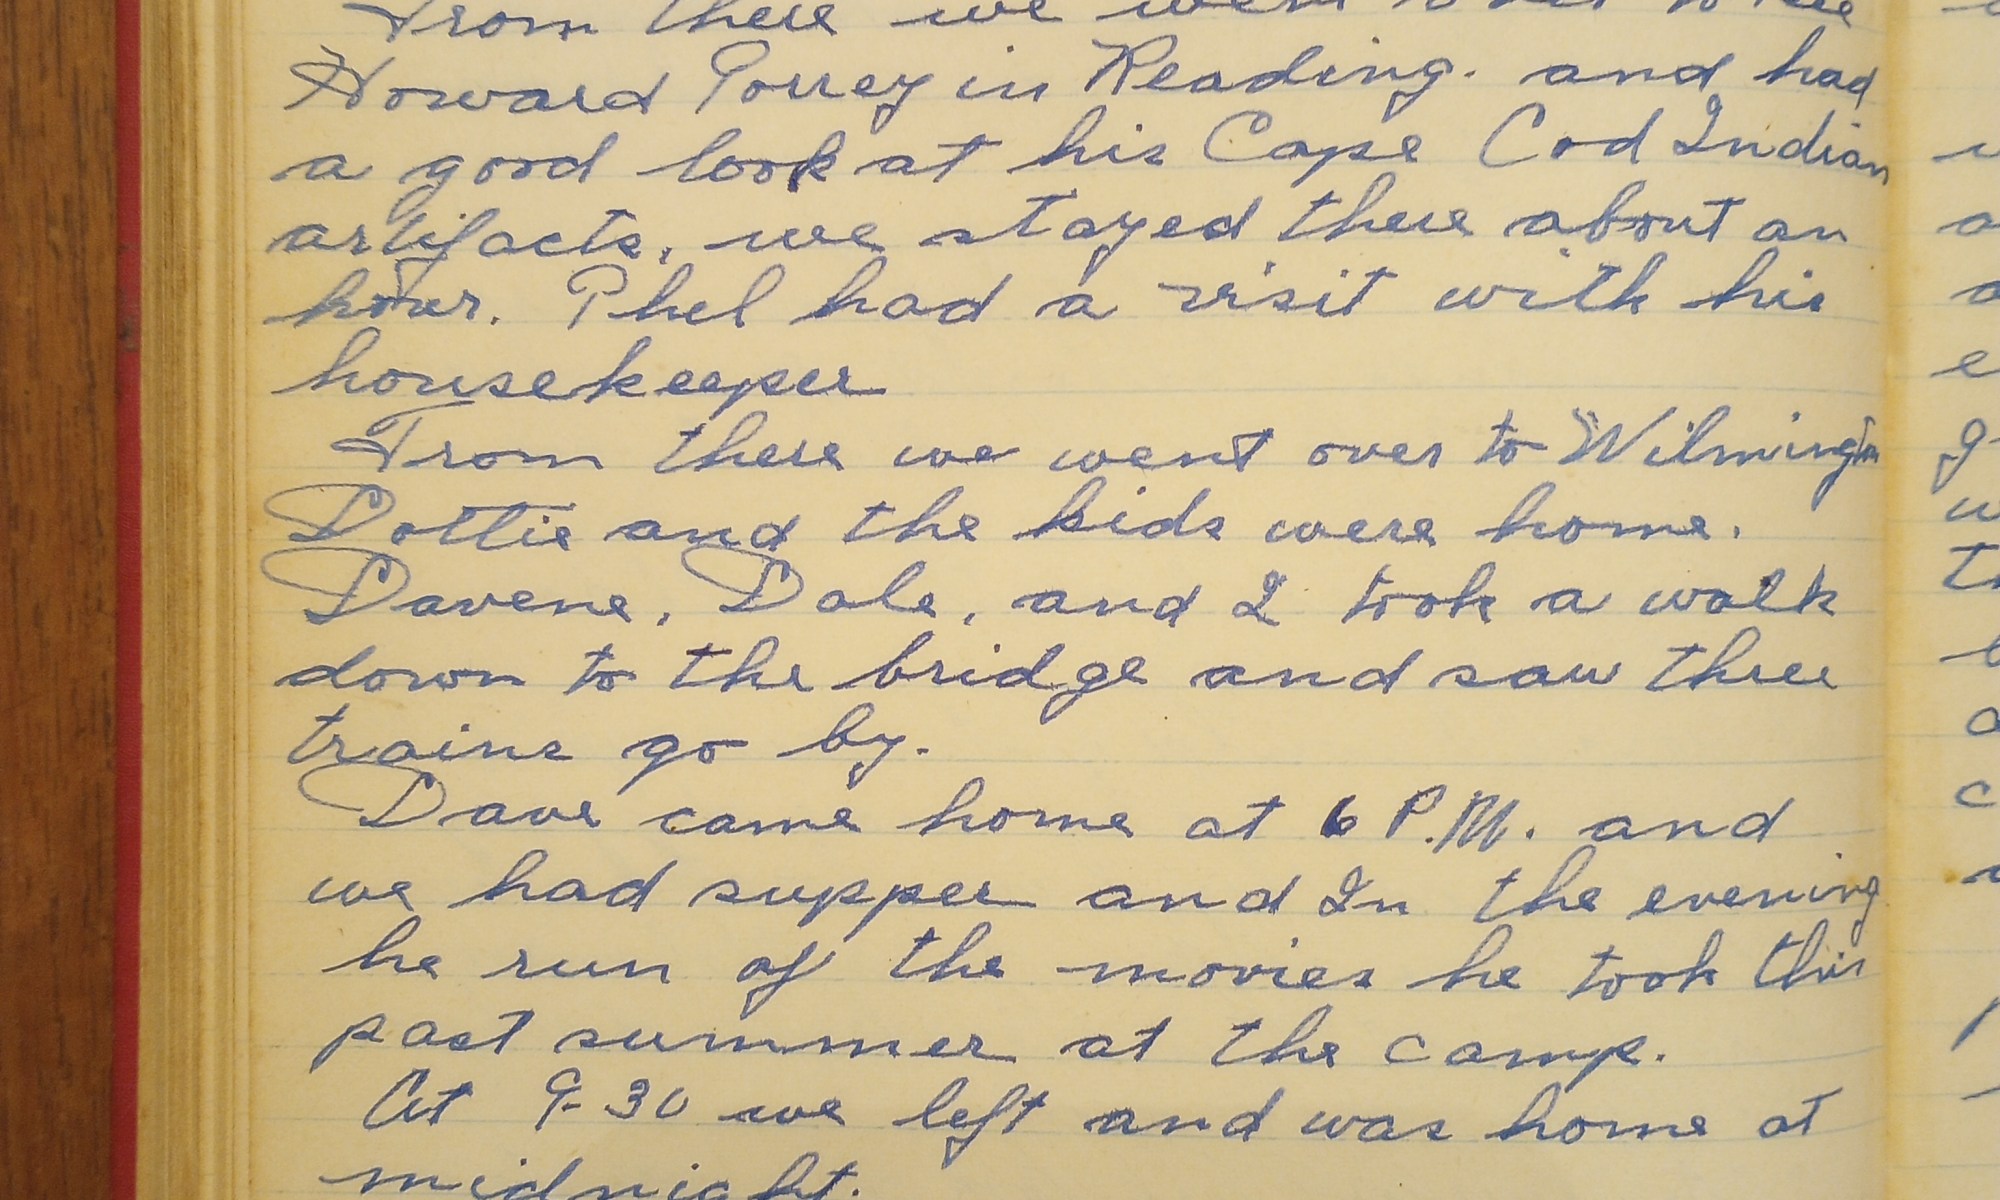 From there we went over to see
Howard Torrey in Reading. and had
a good look at his Cape Cod Indian
artifacts, we stayed there about an
hour. Phel had a visit with his
housekeeper
From there we went over to Wilmington
Dottie and the kids were home.
Davene, Dale, and I took a walk
down to the bridge and saw three
trains go by.
Dave came home at 6 P.M. and
we had supper and In the evening
he run of the movies he took this
past summer at the camp.
At 9-30 we left and was home at
midnight.